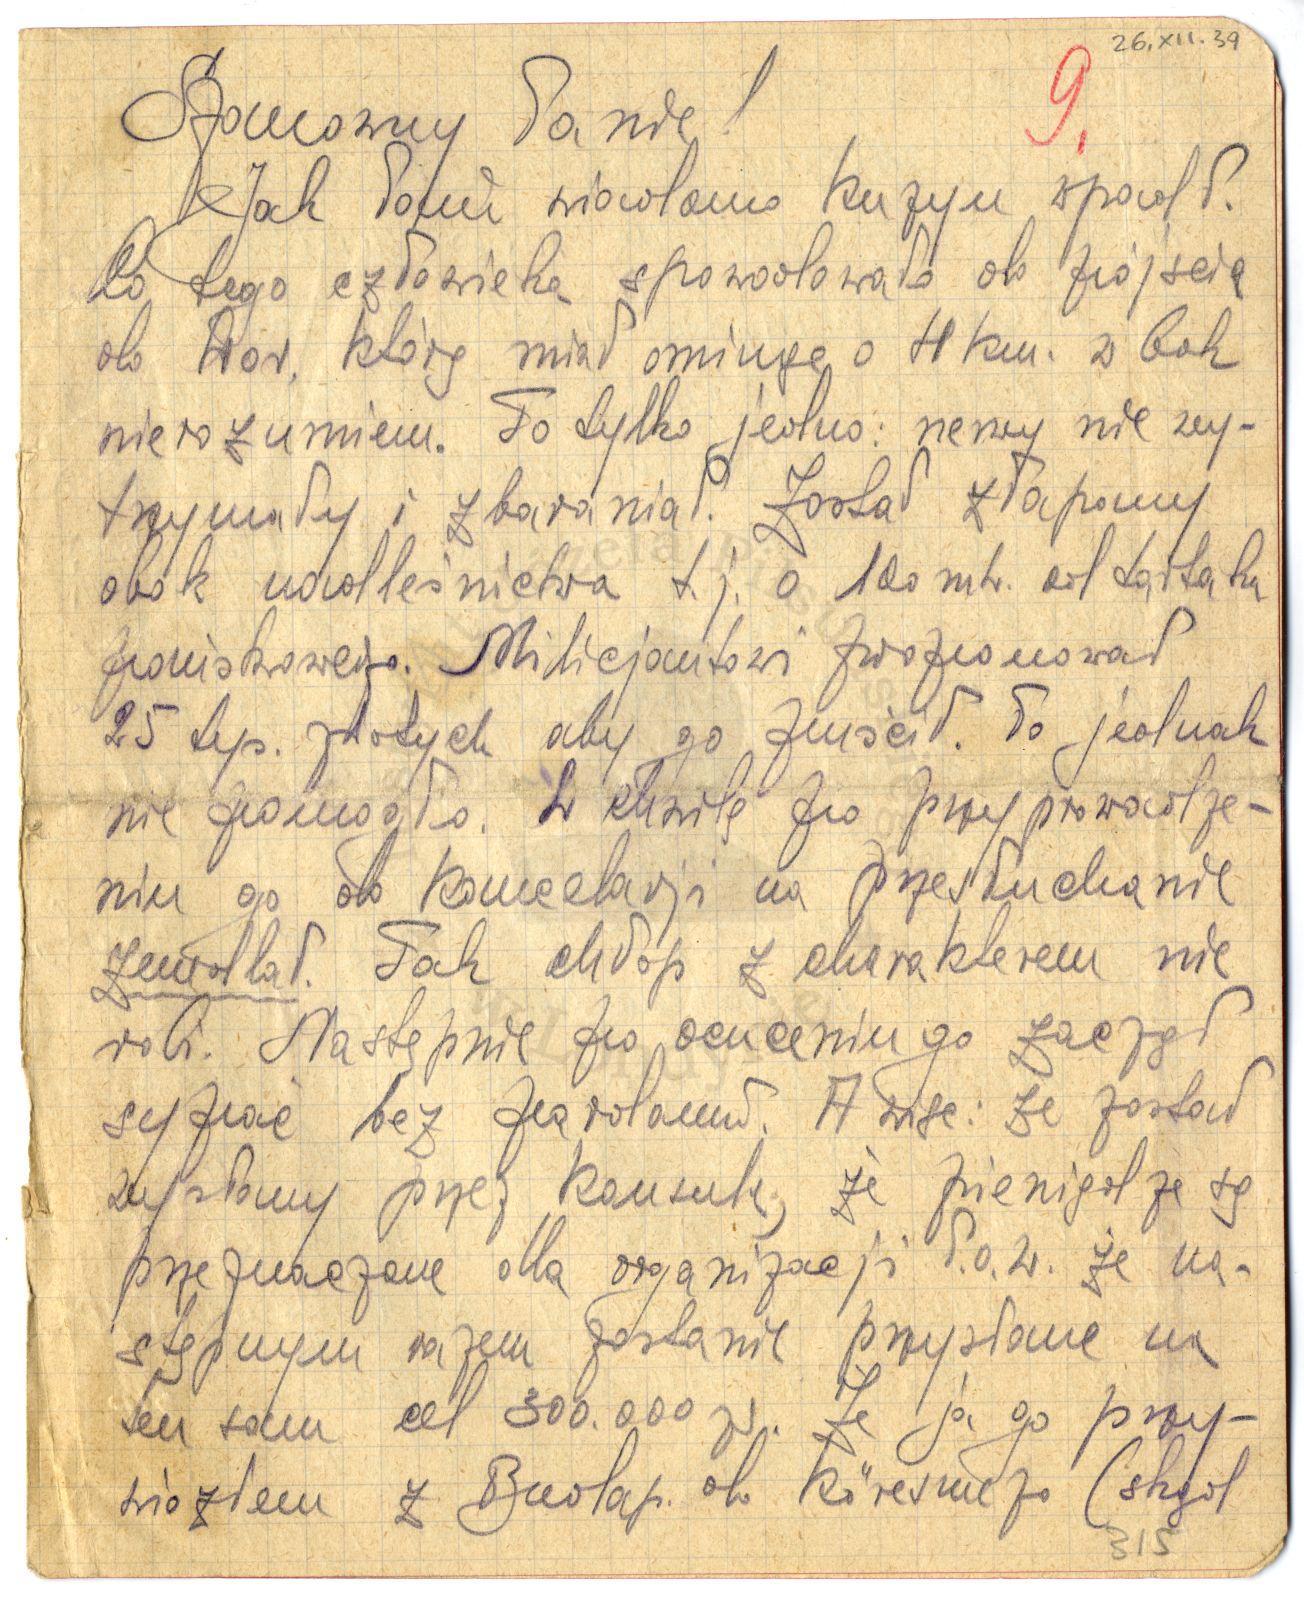 26.XII.39
9.
Szanowny Panie!
Jak Panu wiadomo kuzyn wpadł.
Co tego człowieka spowodowało do pójścia
do Wor. którą miał ominąć o 4 km. w bok
nierozumiem. To tylko jedno: nerwy nie wy-
trzymały i zbaraniał. Został złapany
obok nadleśnictwa t.j. o 100 mtr. od tartaku
państwowego. Milicjantowi proponował
25 tys. złotych aby go puścił. To jednak
nie pomogło. W chwilę po przyprowadze-
niu go do kancelarji na przesłuchanie
zemdlał. Tak chłop z charakterem nie
robi. Następnie po ocuceniu go zaczął
sypać bez pardonu. A więc: że został
wysłany przez konsula, że pieniądze są
przeznaczone dla organizacji P.O.W. że na-
stępnym razem zostanie przysłane na
ten sam cel 300.000 zł. Że ja go przy-
wiozłem z Budap. do Körösmezo (skąd
315